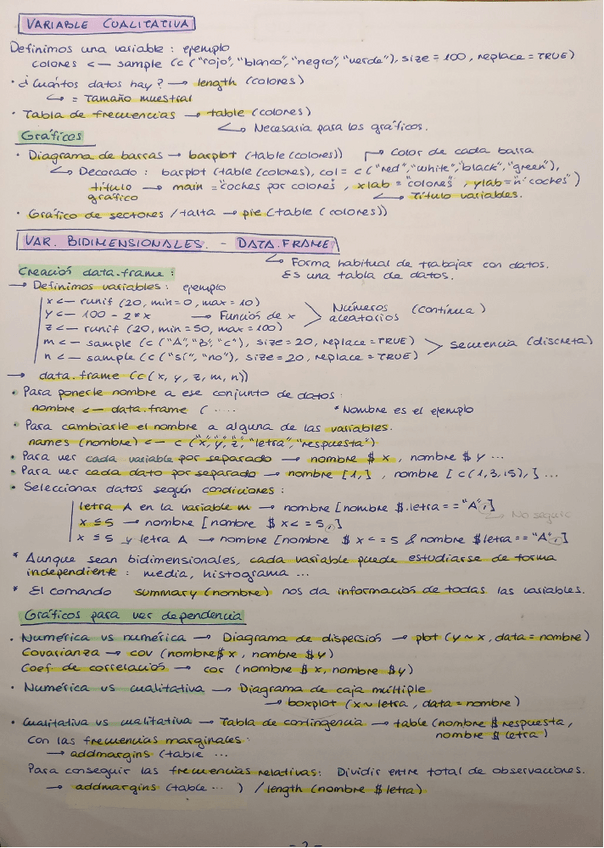 VARIABLE CUALITATIVA
Definimos una variable : ejemplo
colores <— sample (c ("rojo", "blanco", "negro", "verde"), size = 100, replace = TRUE)
· ¿Cuántos datos hay? → length (colores)
↳ = Tamaño muestral
· Tabla de frecuencias → table (colores)
↳ Necesaria para los gráficos.
Gráficos
· Diagrama de barras → barplot (table (colores)) ↱ Color de cada barra
↳ Decorado : barplot (table (colores), col = c ("red", "white", "black", "green"),
título → main = "coches por colores", xlab = "colores", ylab = "nº coches")
gráfico ↳ Título variables.
· Gráfico de sectores / tarta → pie (table (colores))
VAR. BIDIMENSIONALES. - DATA.FRAME
↳ Forma habitual de trabajar con datos.
Es una tabla de datos.
Creación data.frame :
→ Definimos variables : ejemplo
x <— runif (20, min = 0, max = 10)
y <— 100 - 2*x → Función de x
z <— runif (20, min = 50, max = 100)
Números (continua)
aleatorios
m <— sample (c ("A", "B", "C"), size = 20, replace = TRUE)
n <— sample (c ("sí", "no"), size = 20, replace = TRUE)
Secuencia (discreta)
→ data.frame (c (x, y, z, m, n))
· Para ponerle nombre a ese conjunto de datos :
nombre <— data.frame ( .... *Nombre es el ejemplo
· Para cambiarle el nombre a alguna de las variables.
names (nombre) <— c ("x", "y", "z", "letra", "respuesta")
· Para ver cada variable por separado → nombre $ x , nombre $ y ...
· Para ver cada dato por separado → nombre [1,] , nombre [c (1,3,15),] ...
· Seleccionar datos según condiciones :
letra A en la variable m → nombre [nombre $ letra == "A",]
→ No seguir
x ≤ 5 → nombre [nombre $ x <= 5,]
x ≤ 5 y letra A → nombre [nombre $ x <= 5 & nombre $ letra == "A",]
* Aunque sean bidimensionales, cada variable puede estudiarse de forma
independiente : media, histograma ...
* El comando summary (nombre) nos da información de todas las variables.
Gráficos para ver dependencia
· Numérica vs numérica → Diagrama de dispersión → plot (y ~ x, data = nombre)
Covarianza → cov (nombre $ x , nombre $ y)
Coef. de correlación → cor (nombre $ x, nombre $ y)
· Numérica vs cualitativa → Diagrama de caja múltiple
→ boxplot (x ~ letra , data = nombre)
· Cualitativa vs cualitativa → Tabla de contingencia → table (nombre $ respuesta,
nombre $ letra)
Con las frecuencias marginales:
→ addmargins (table ...
Para conseguir las frecuencias relativas: Dividir entre total de observaciones.
→ addmargins (table ... ) / length (nombre $ letra)
- 2 -